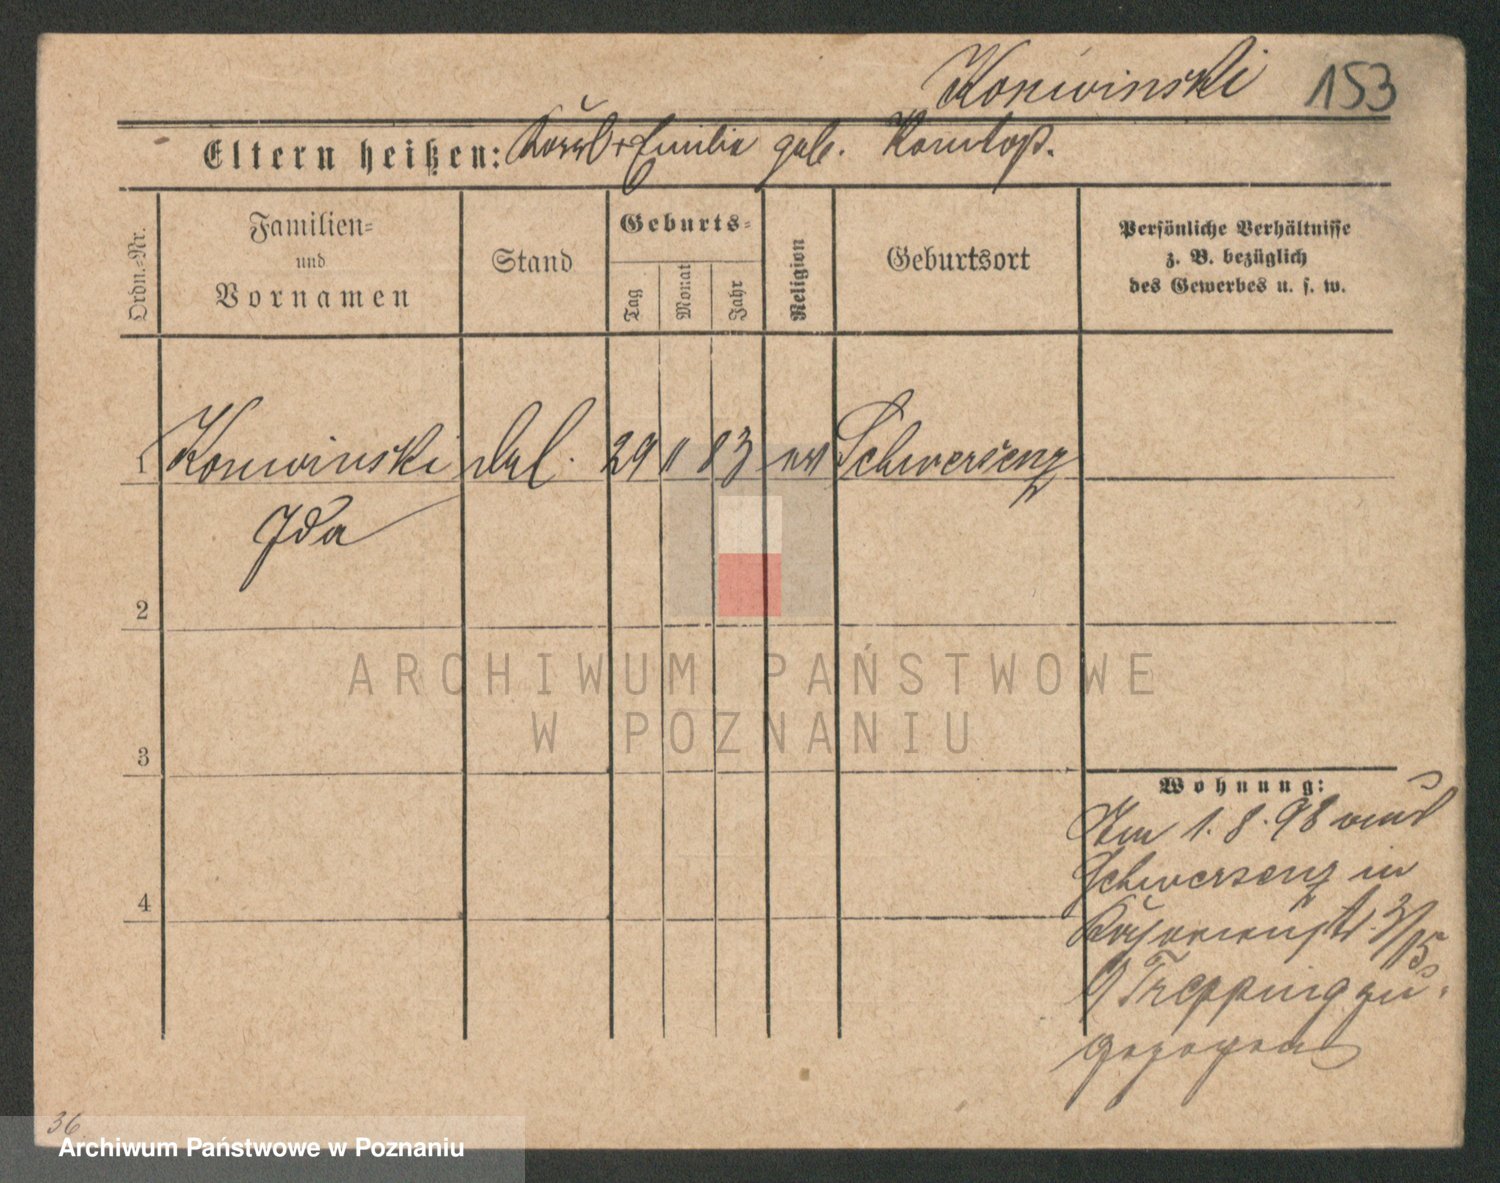 Koniwinski 153
Eltern heißen: Karl + Emilie geb.
Ordn.-Nr.
Familien-
und
Vornamen
Stand
Geburts-
Tag
Monat
Jahr
Religion
Geburtsort
Persönliche Verhältnisse
z. B. bezüglich
des Gewerbes u. s. w.
1 Koniwinski 29 11 83 ev Schwersenz
Ida
2
ARCHIWUM PAŃSTWOWE
W POZNANIU
3
Wohnung:
Am 1. 8. 98 von
Schwersenz in
3/15
b/ Trepping zu-
gezogen
4
36
Archiwum Państwowe w Poznaniu